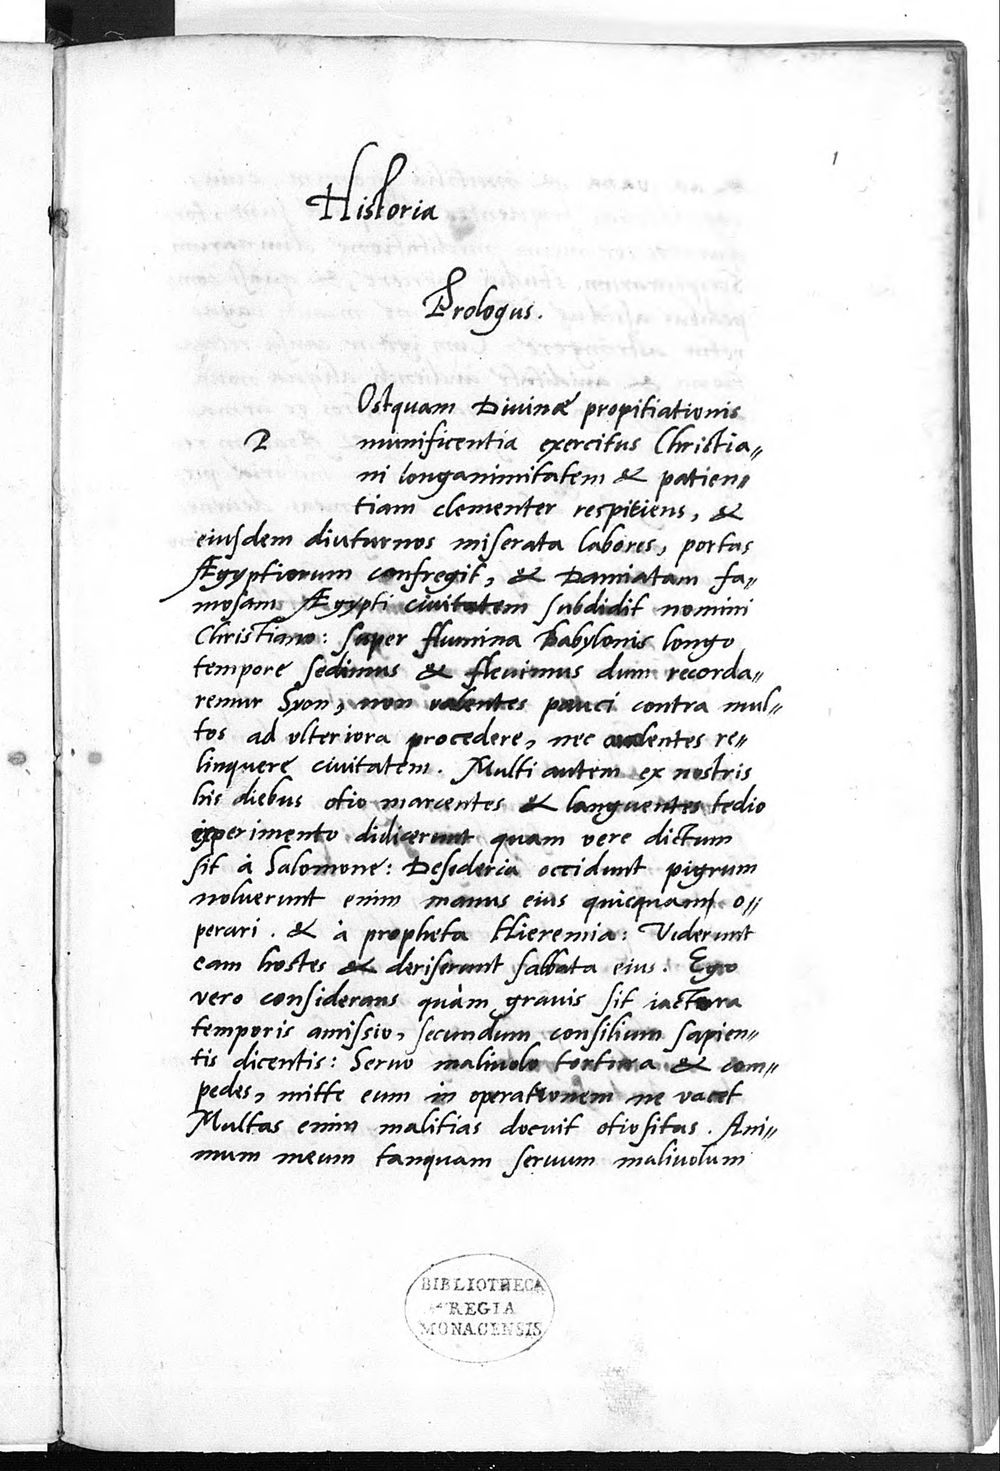 1
Historia
Prologus.
Ostquam Diuinæ propitiationis
P munificentia exercitus Christia„
ni longanimitatem & patien„
tiam clementer respitiens, &
eiusdem diuturnos miserata labores, portas
Ægyptiorum confregit, & Damiatam fa„
mosam Ægypti ciuitatem subdidit nomini
Christiano: super flumina Babylonis longo
tempore sedimus & fleuimus dum recorda„
remur Syon, non valentes pauci contra mul„
tos ad vlteriora procedere, nec audentes re„
linquere ciuitatem. Multi autem ex nostris
his diebus otio marcentes & languentes tedio
experimento didicerunt quam vere dictum
sit à Salomone: Desideria occidunt pigrum
noluerunt enim manus eius quicquam o„
perari. & à propheta Hieremia: Viderunt
eam hostes & deriserunt sabbata eius. Ego
vero considerans quàm grauis sit iactura
temporis amissio, secundum consilium sapien„
tis dicentis: Seruo maliuolo tortura & com„
pedes, mitte eum in operationem ne vacet
Multas enim malitias docuit otiositas. Ani„
mum meum tanquam seruum maliuolum
BIBLIOTHECA
REGIA
MONACENSIS